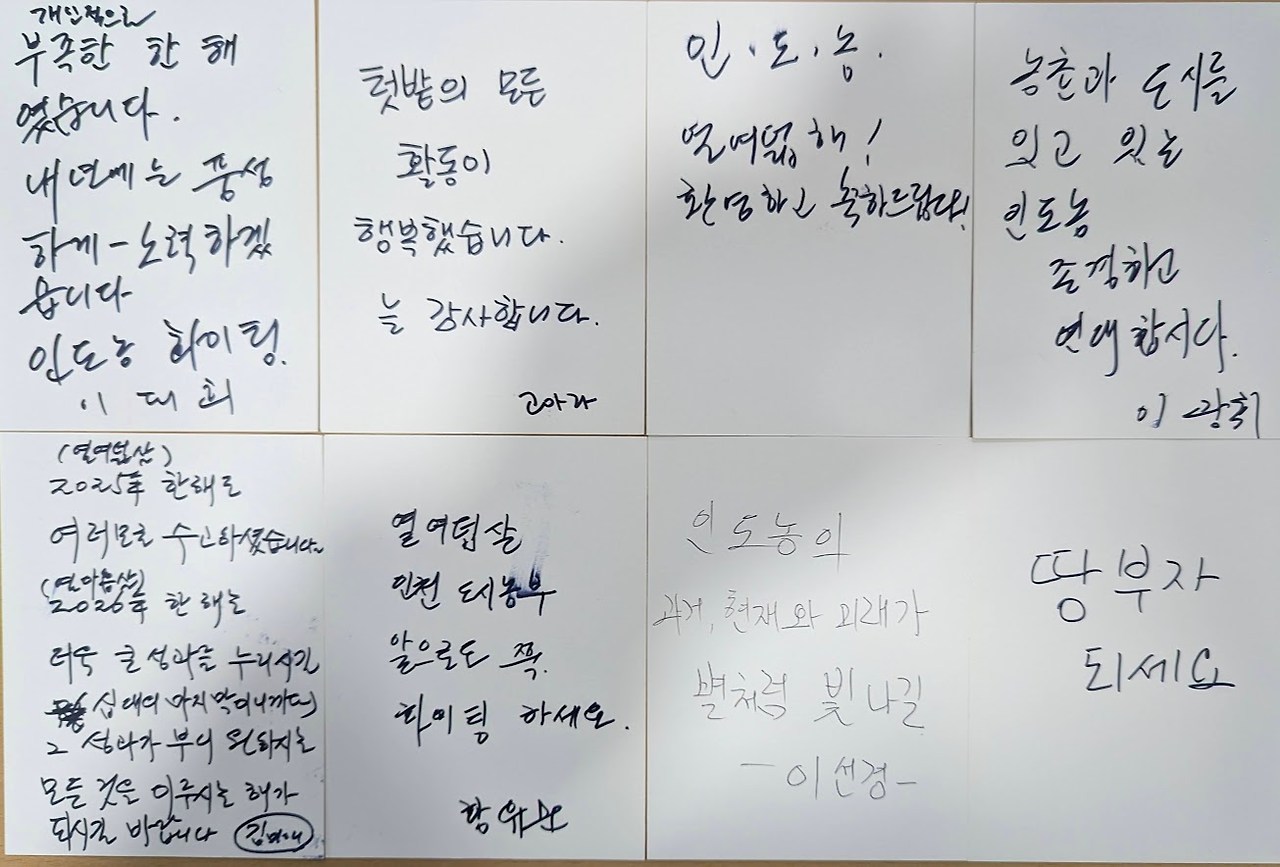 개인적으로
부족한 한 해
였습니다.
내년에는 풍성
하게 - 노력하겠
읍니다
인도농 화이팅.
이 대 희
텃밭의 모든
활동이
행복했습니다.
늘 감사합니다.
고아라
인·도·농.
열여덟해!
환영하고 축하드립니다!
농촌과 도시를
잇고 있는
인도농
존경하고
연대합시다.
이광희
(열여덟살)
2025年 한해도
여러모로 수고하셨습니다.
(열아홉살)
2026年 한 해는
더욱 큰 성과를 누리시길
십대의 마지막이니까요)
그 성과가 부디 원하시는
모든 것을 이루시는 해가
되시길 바랍니다
열여덟살
인천 도시농부
앞으로도 쭉.
화이팅 하세요.
인도농의
과거, 현재와 미래가
별처럼 빛나길
-이선경-
땅부자
되세요